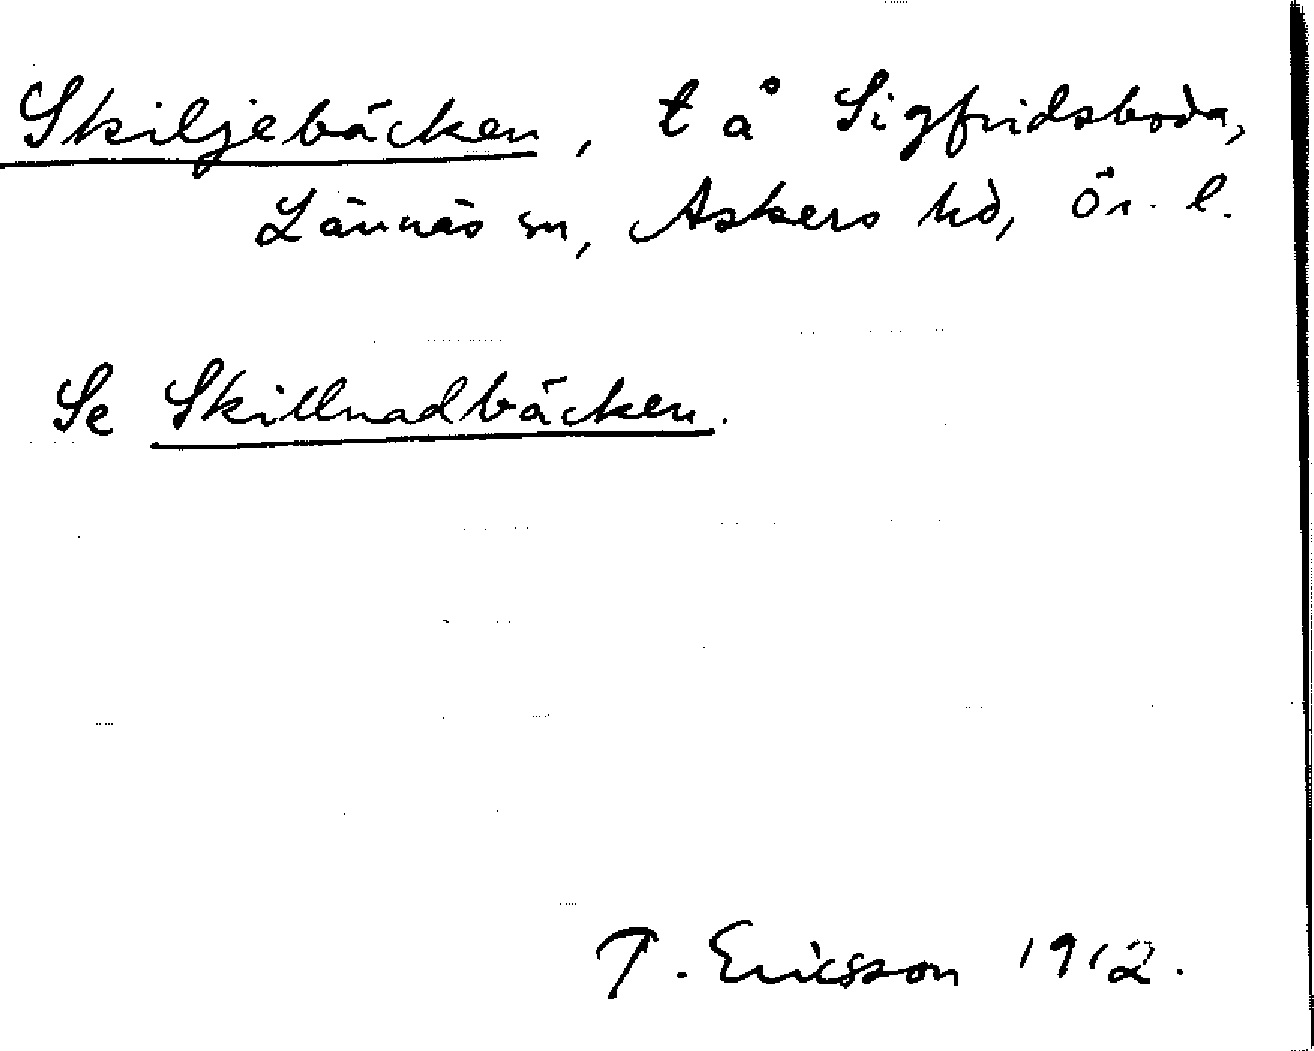 Skiljebäcken, t å Sigfridsboda,
Lännäs sn, Askers hd, Ör. l.
Se Skillnadbäcken.
T. Ericsson 1912.